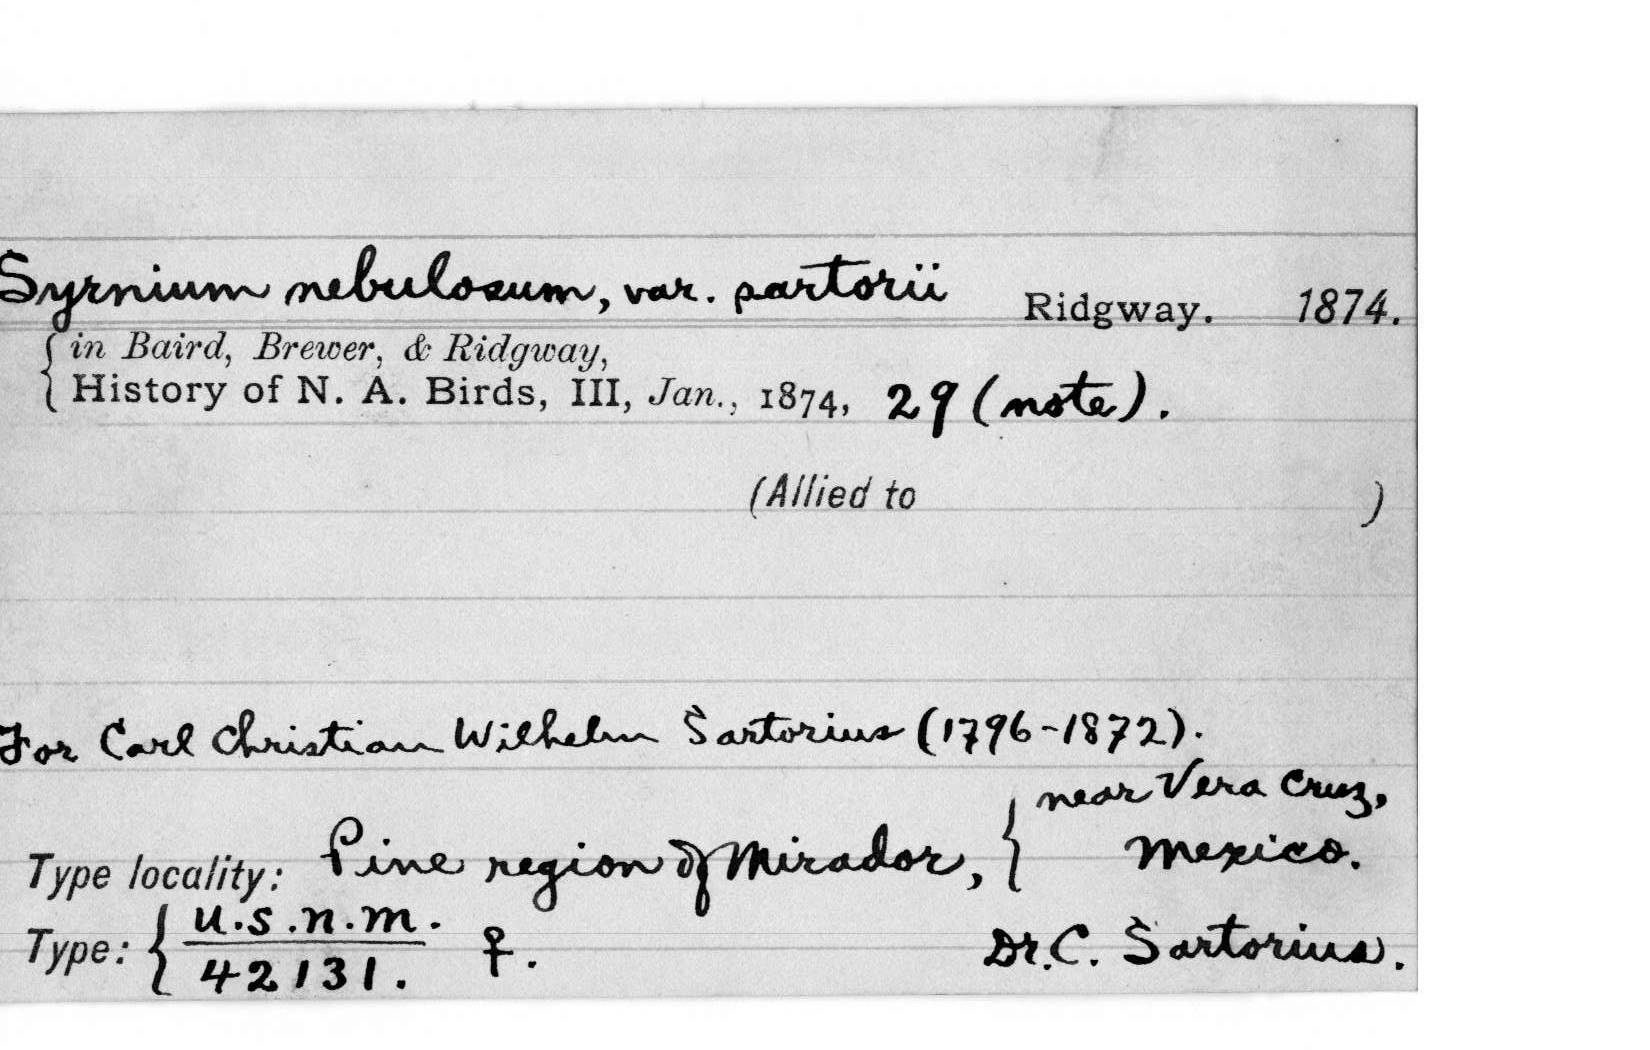 Syrnium nebulosum, var. sartorii Ridgway. 1874.
in Baird, Brewer, & Ridgway,
History of N. A. Birds, III, Jan., 1874, 29 (note).
(Allied to )
For Carl Christian Wilhelm Sartorius (1796-1872).
near Vera Cruz,
Type locality: Pine region of Mirador, Mexico.
U.S.N.M.
Type: 42131. ♀. Dr. C. Sartorius.